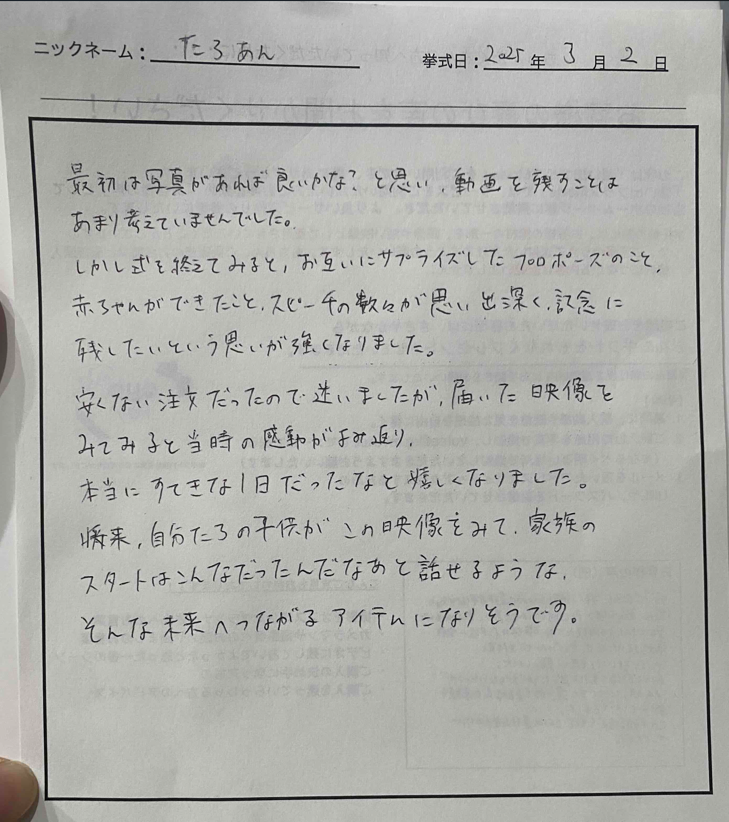 ニックネーム： たろあん
挙式日： 2025 年 3 月 2 日
最初は写真があれば良いかな？と思い、動画を残すことは
あまり考えていませんでした。
しかし式を終えてみると、お互いにサプライズしたプロポーズのこと、
赤ちゃんができたこと、スピーチの数々が思い出深く、記念に
残したいという思いが強くなりました。
安くない注文だったので迷いましたが、届いた映像を
みてみると当時の感動がよみ返り、
本当にすてきな1日だったなと嬉しくなりました。
将来、自分たちの子供がこの映像をみて、家族の
スタートはこんなだったんだなあと話せるような、
そんな未来へつながるアイテムになりそうです。